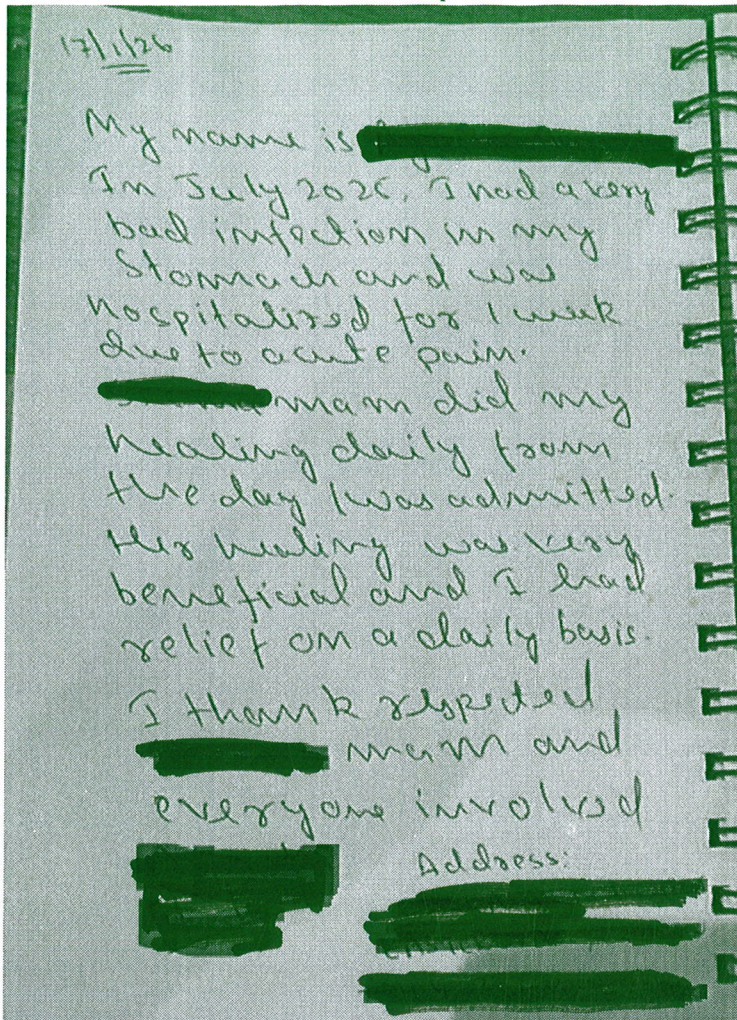 17/1/26
My name is
In July 2026, I had a very
bad infection in my
Stomach and was
hospitalized for 1 week
due to acute pain.
mam did my
healing daily from
the day I was admitted.
Her healing was very
beneficial and I had
relief on a daily basis.
I thank respected
mam and
everyone involved
Address: